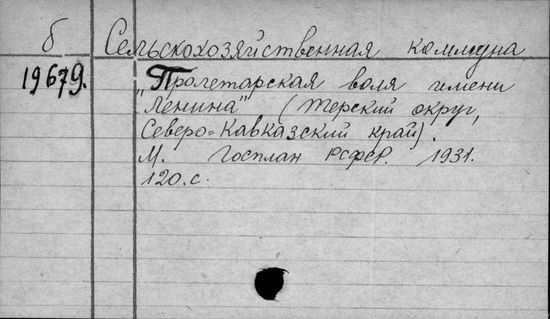 б Сельскохозяйственная коммуна
19679. "Пролетарская воля имени
Ленина" (Терский округ,
Северо-Кавказский край).
М. Госплан РСФСР. 1931.
120.с.